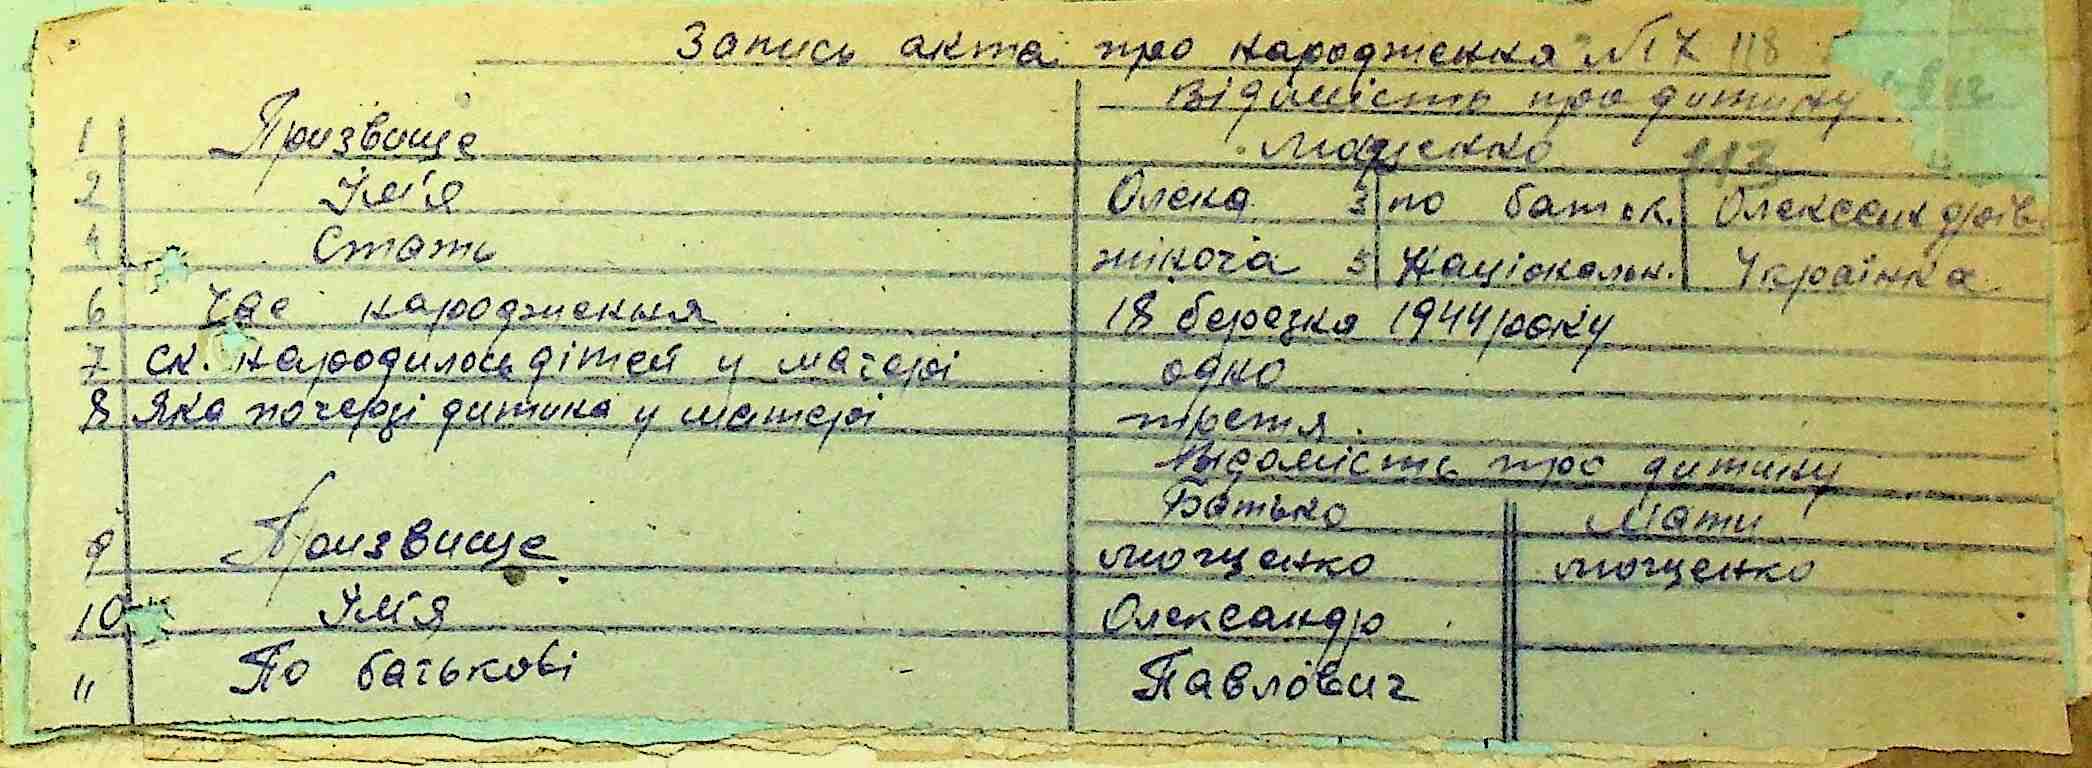 Запись акта про народження №17 118
Відомість про дитину
1 Призвище Мощенко 113
2 Ім'я Олена 3 по батьк. Олександрів
4 Стать жіноча 5 Націокальн. Українка
6 Час народження 18 березня 1944 року
7 ск. народилось дітей у матері одно
8 Яка по черзі дитина у матері третя.
Відомість про дитину
Батько Мати
9 Призвище Мощенко Мощенко
10 Ім'я Олександр
11 По батькові Павлович